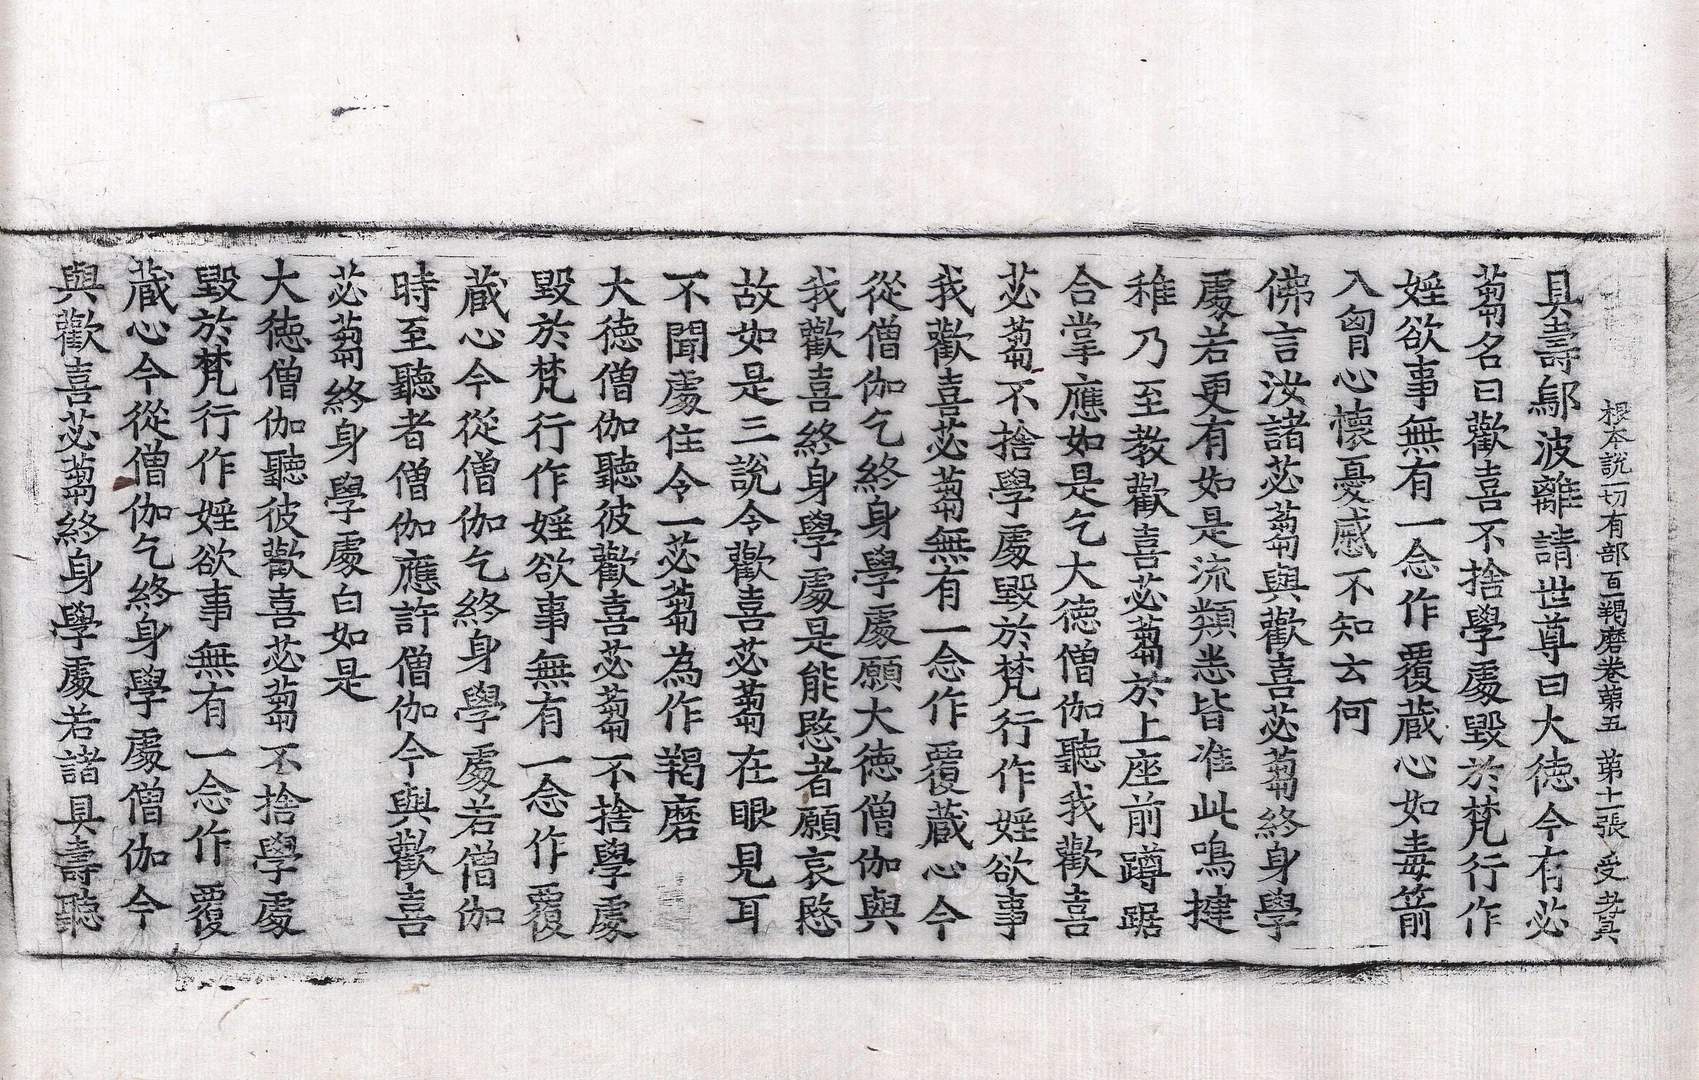 根本說一切有部百一羯磨卷第五　第十一張　受
具壽鄔波離請世尊曰大德今有苾
蒭名曰歡喜不捨學處毀於梵行作
婬欲事無有一念作覆藏心如毒箭
入胷心懷憂慼不知云何
佛言汝諸苾蒭與歡喜苾蒭終身學
處若更有如是流類悉皆准此鳴揵
稚乃至教歡喜苾蒭於上座前蹲踞
合掌應如是乞大德僧伽聽我歡喜
苾蒭不捨學處毀於梵行作婬欲事
我歡喜苾蒭無有一念作覆藏心今
從僧伽乞終身學處願大德僧伽與
我歡喜終身學處是能愍者願哀愍
故如是三說令歡喜苾蒭在眼見耳
不聞處住令一苾蒭為作羯磨
大德僧伽聽彼歡喜苾蒭不捨學處
毀於梵行作婬欲事無有一念作覆
藏心今從僧伽乞終身學處若僧伽
時至聽者僧伽應許僧伽今與歡喜
苾蒭終身學處白如是
大德僧伽聽彼歡喜苾蒭不捨學處
毀於梵行作婬欲事無有一念作覆
藏心今從僧伽乞終身學處僧伽今
與歡喜苾蒭終身學處若諸具壽聽